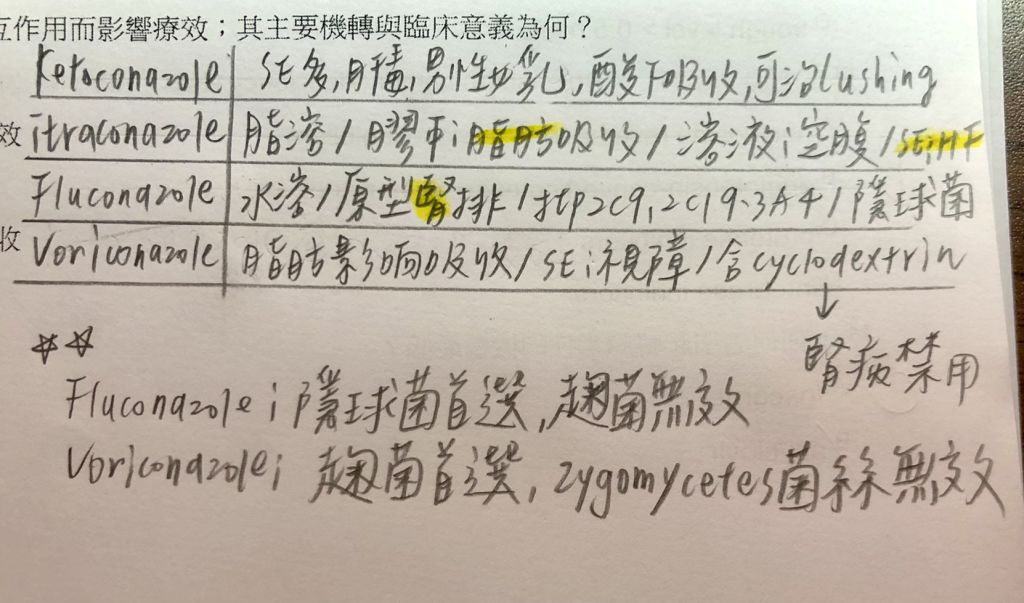 互作用而影響療效；其主要機轉與臨床意義為何？
Ketoconazole SE多,肝毒,男性女乳,酸下吸收,可治Cushing
效 itraconazole 脂溶/膠平;脂肪吸收/溶液;空腹/SE;HF
Fluconazole 水溶/原型腎排/抗P2C9,2C19.3A4/隱球菌
收 Voriconazole 脂肪影响吸收/SE;視障/含cyclodextrin
↓
腎病禁用
☆☆
Fluconazole;隱球菌首選,麴菌無效
Voriconazole;麴菌首選,zygomycetes菌絲無效